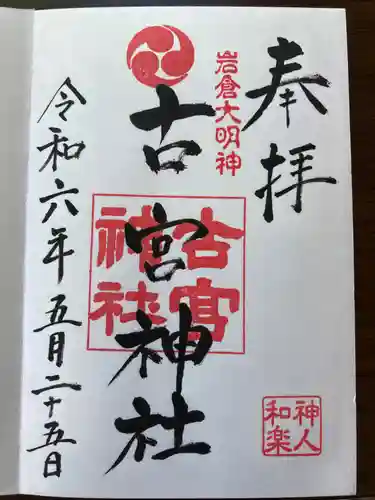 奉拝
岩倉大明神
古宮神社
古宮
神社
令和六年五月二十五日
神人
和楽